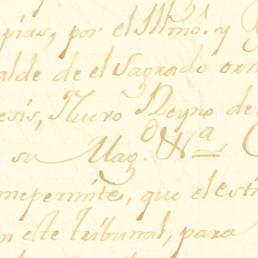 pias, por el Illmo. y
alde de el Sagrado orn
esis, Nuevo Reyno de
su Mag.d Na
mepermite, que el esti
n este tribunal, para